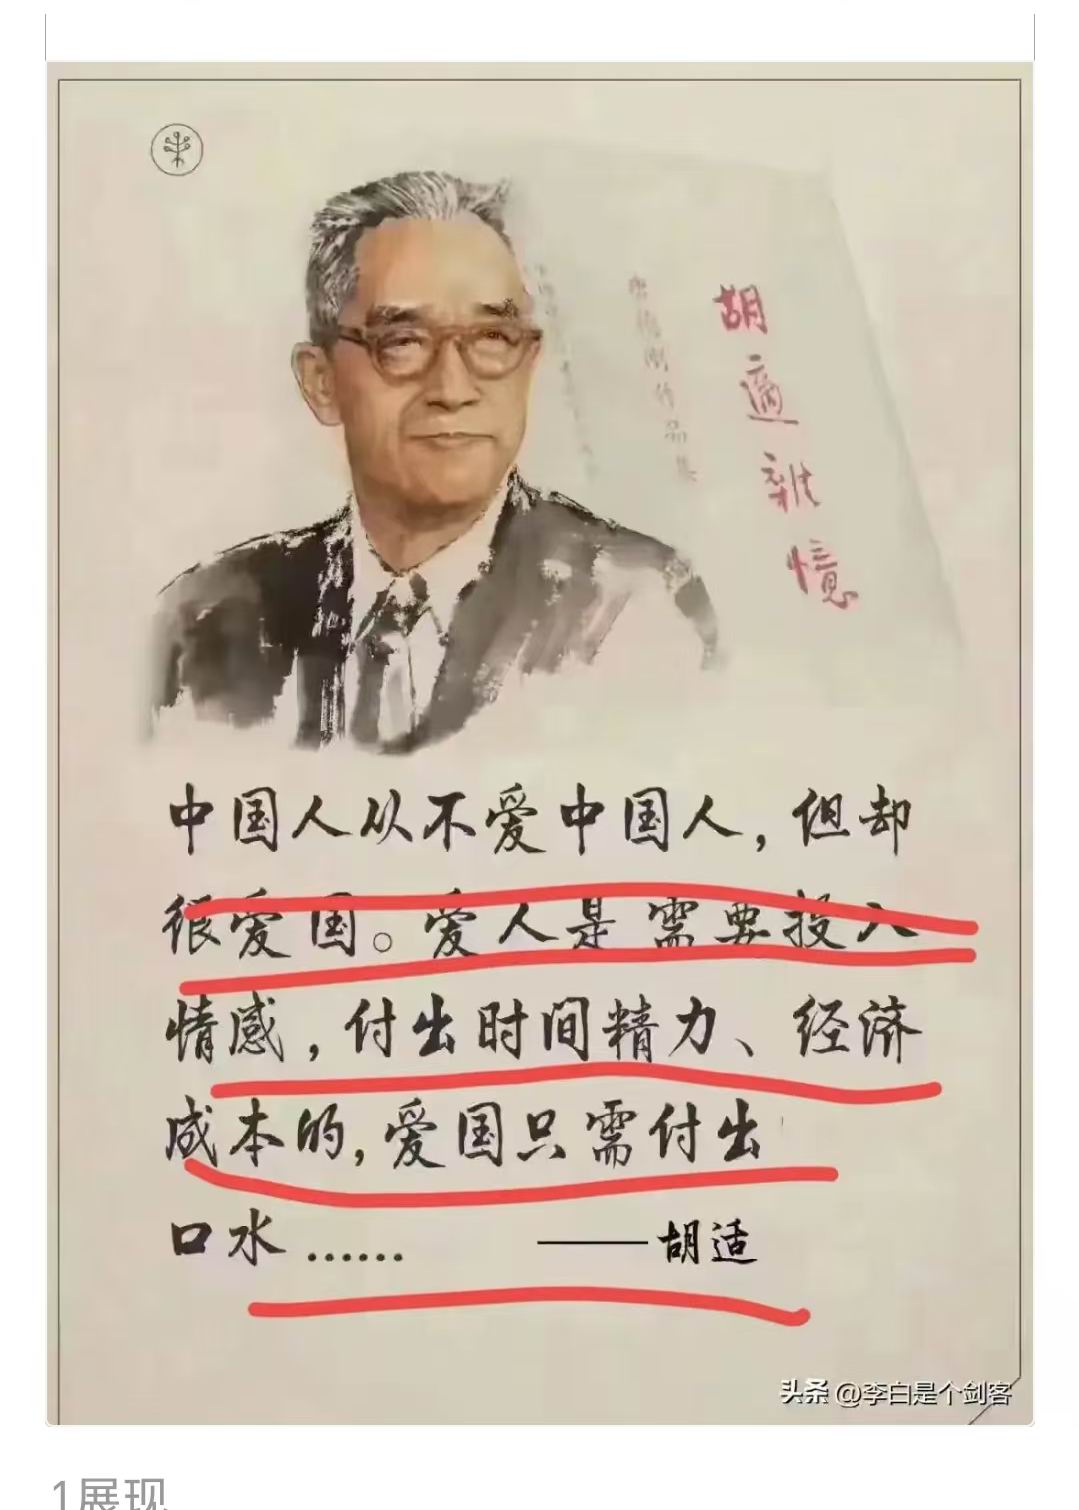 胡適雜憶
唐德刚作品集
中国人从不爱中国人，但却
很爱国。爱人是需要投入
情感，付出时间精力、经济
成本的，爱国只需付出
口水……  ——胡适
头条 @李白是个剑客
1展现